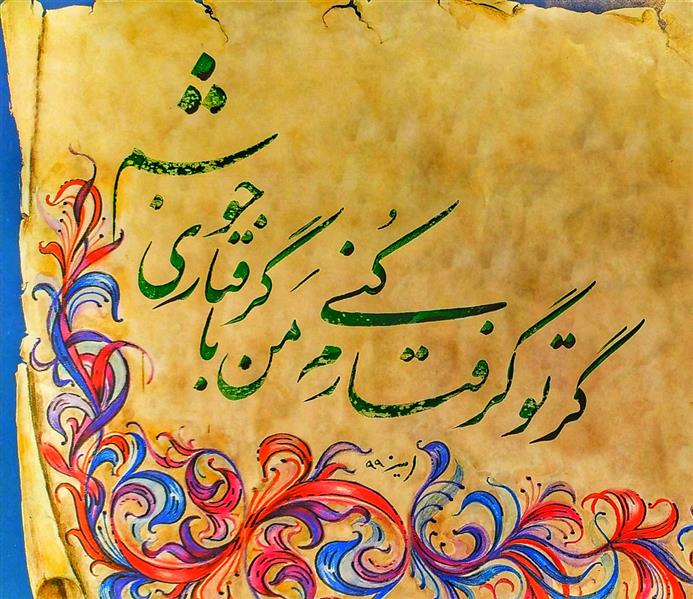 گر تو گرفتارم کُنی مَن با گرفتاری خوشم
۹۹